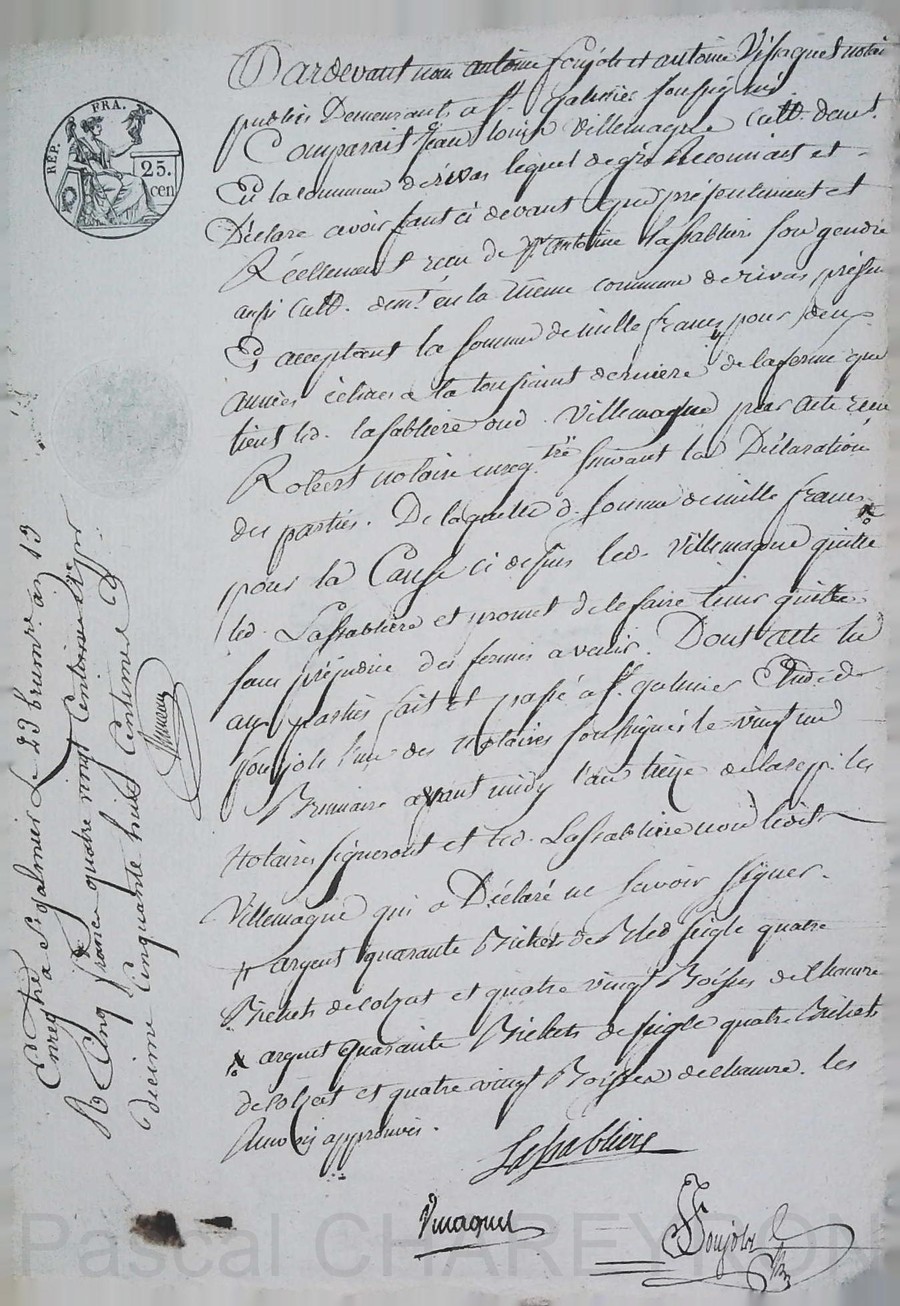 Pardevant nous antoine Foujols et antoine Vissaguet notai
publics Demeurants a St. galmier soussignés
Comparait Jean louis Villemagne Cult. demt.
En la commune de rivas lequel de gré Reconnait et
Déclare avoir tant ci devant que présentement et
Réellement recu de antoine Lassabliere son gendre
aussi Cult. demt. en la meme commune de rivas, présen
Et acceptant la somme de mille francs pour deux
années échues a la toussaint derniere de la ferme que
tient led. lassabliere dud. Villemagne par acte recu
Robert notaire enreg.tré suivant la Déclaration
des parties. De laquelle d. somme de mille francs
pour la Cause ci dessus led. Villemagne quitte
led. Lassabliere et promet de le faire tenir quitte
sans préjudice des fermes a venir. Dont acte lu
aux parties fait et passé a St. galmier Etude de
foujols l'un des notaires soussignés le vingt un
Brumaire avant midy l'an treize de la rep. les
Notaires signeront et led. Lassabliere non ledit
Villemagne qui a Déclaré ne savoir signer.
argent quarante Bichets de Bled seigle quatre
Bichets de colzat et quatre vingt Boisses de chanvre
argent quarante Bichets de seigle quatre Bichets
de colzat et quatre vingt Boisses de chanvre. les
Renvois approuvés.
Lassabliere
Foujols
REP. FRA.
25.
cen
Enregtré a St galmier Le 23 brumre. an 13
R Cinq francs quatre vingt Centimes
decime Cinquante huit Centimes
Pascal CHAREYRON